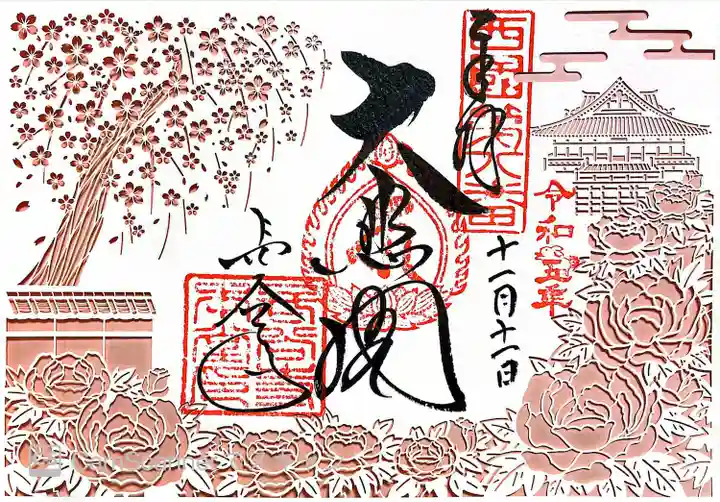 奉拝
西國第八番
令和五年
十一月十一日
大悲閣
長谷寺
CamScanner